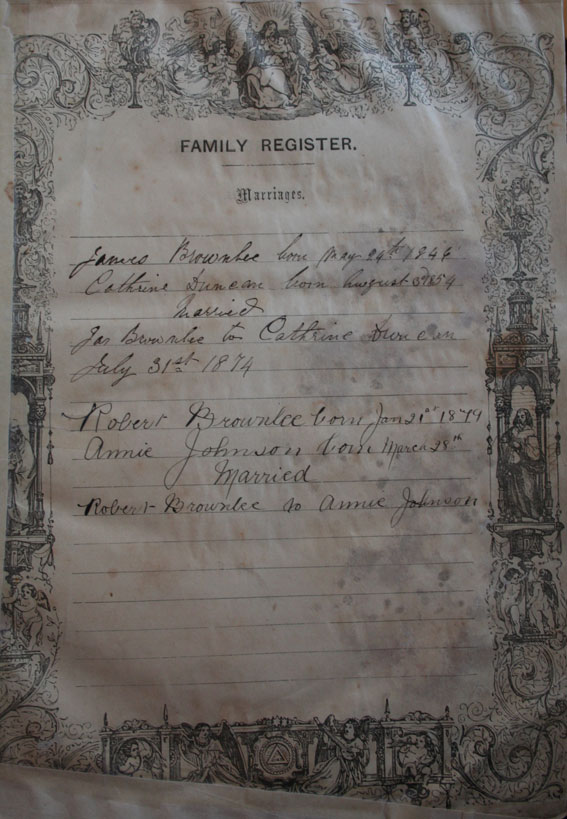 FAMILY REGISTER.
Marriages.
James Brownlee born May 24th 1846
Cathrine Duncan born August 1854
Married
Jas Brownlee to Cathrine Duncan
July 31st 1874
Robert Brownlee born Jan 21st 1879
Annie Johnson born March 28th
Married
Robert Brownlee to Annie Johnson